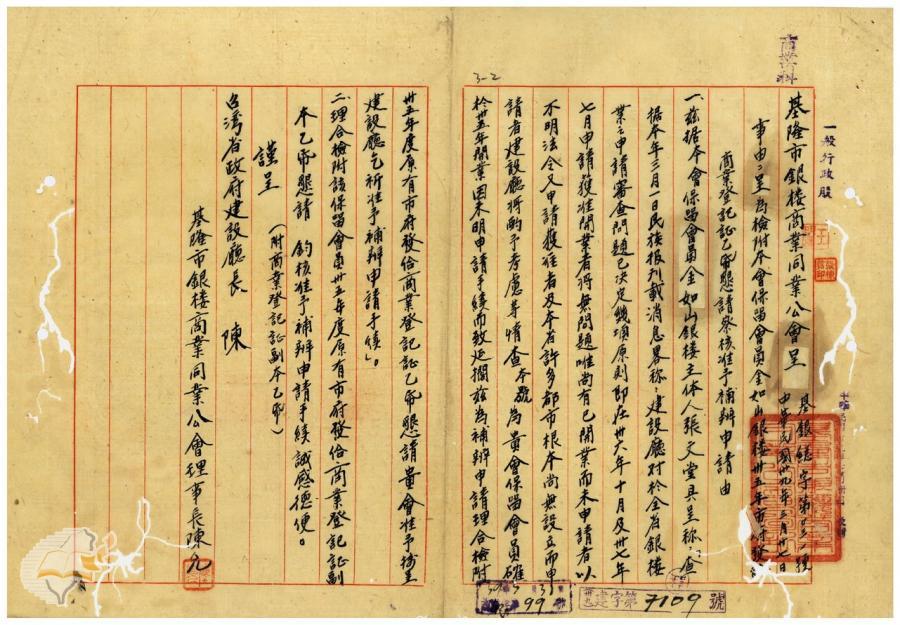 商業科
一般行政股
基隆市銀楼商業同業公會 呈
基銀總字第 號
中華民國卅九年三月廿七日
事由:呈為檢附本會保留會員金如山銀楼卅五年市府發給
商業登記証乙帋懇請察核准予補辦申請由
一、茲据本會保留會員金如山銀楼主体人張文堂具呈称:查
据本年三月一日民族报刋載消息畧称:建設廳对於全省銀楼
業之申請審查問題已決定幾項原則即在卅六年十月及卅七年
七月申請獲准開業者將無問題唯尚有已開業而未申請者以
不明法令又申請獲准者及本省許多都市根本尚無設立而申
請者建設廳将酌予考慮等情查本號為貴會保留會員確
於卅五年開業因未明申請手續而致延擱茲為補辦申請理合檢附
卅五年度原有市府發給商業登記証乙帋懇請貴會准予轉呈
建設廳乞祈准予補辦申請手續」。
二、理合檢附該保留會員卅五年度原有市府發給商業登記証副
本乙帋懇請 鈞核准予補辦申請手續誠感德便。
謹呈
(附商業登記証副本乙帋)
台灣省政府建設廳長 陳
基隆市銀楼商業同業公會理事長陳
3-2
99
建字第7109號